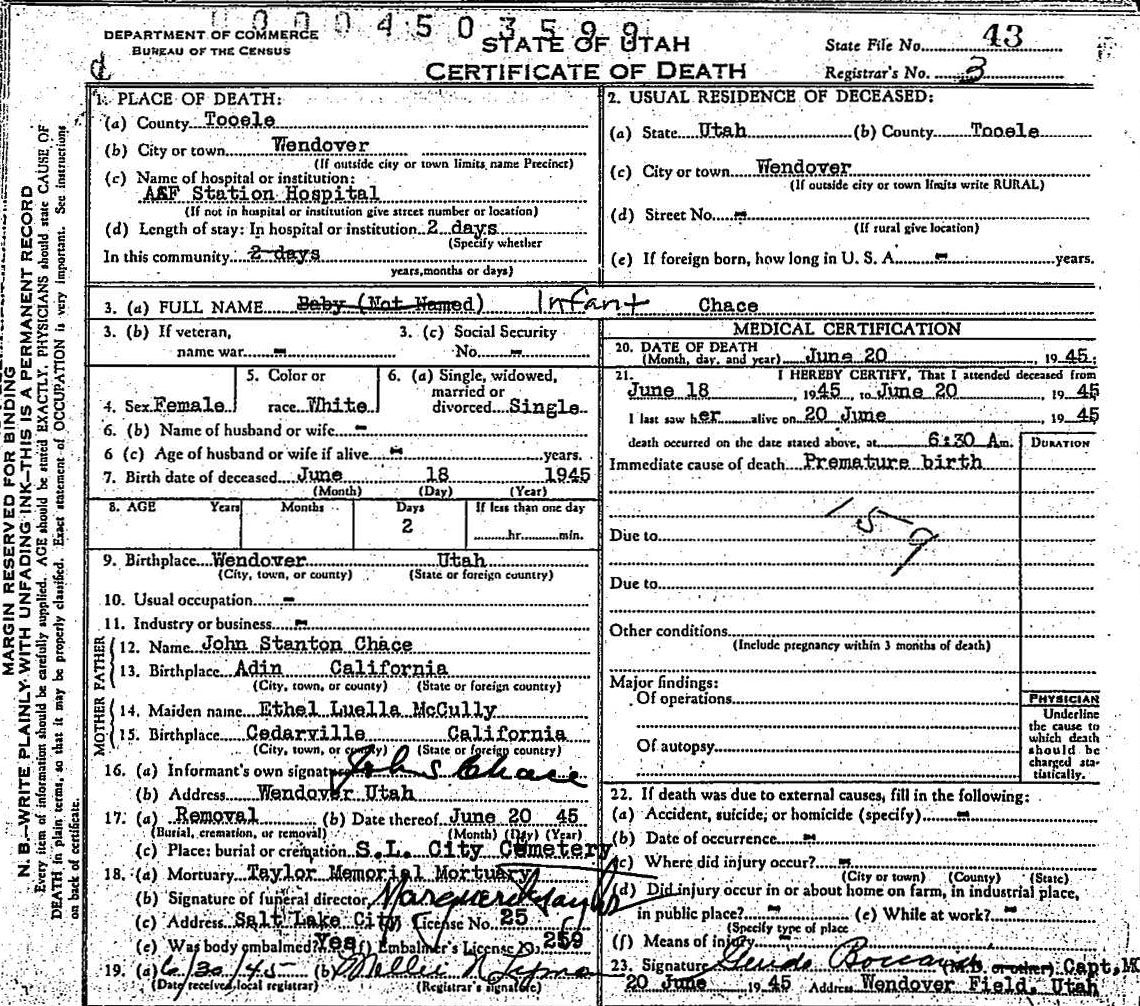 00004503599
DEPARTMENT OF COMMERCE
BUREAU OF THE CENSUS
d
STATE OF UTAH
CERTIFICATE OF DEATH
State File No. 43
Registrar's No. 3
MARGIN RESERVED FOR BINDING
N. B.—WRITE PLAINLY, WITH UNFADING INK—THIS IS A PERMANENT RECORD
Every item of information should be carefully supplied. AGE should be stated EXACTLY. PHYSICIANS should state CAUSE OF
DEATH in plain terms, so that it may be properly classified. Exact statement of OCCUPATION is very important. See instructions
on back of certificate.
1. PLACE OF DEATH:
(a) County Tooele
(b) City or town Wendover
(If outside city or town limits name Precinct)
(c) Name of hospital or institution:
AAF Station Hospital
(If not in hospital or institution give street number or location)
(d) Length of stay: In hospital or institution 2 days
(Specify whether
In this community 2 days
years, months or days)
2. USUAL RESIDENCE OF DECEASED:
(a) State Utah (b) County Tooele
(c) City or town Wendover
(If outside city or town limits write RURAL)
(d) Street No. -
(If rural give location)
(e) If foreign born, how long in U. S. A. - years.
3. (a) FULL NAME Baby (Not Named) Infant Chace
3. (b) If veteran,
name war -
3. (c) Social Security
No. -
4. Sex Female
5. Color or
race White
6. (a) Single, widowed,
married or
divorced Single
6. (b) Name of husband or wife -
6 (c) Age of husband or wife if alive - years.
7. Birth date of deceased June 18 1945
(Month) (Day) (Year)
8. AGE Years Months Days If less than one day
2 hr. min.
9. Birthplace Wendover Utah
(City, town, or county) (State or foreign country)
10. Usual occupation -
11. Industry or business -
FATHER
12. Name John Stanton Chace
13. Birthplace Adin California
(City, town, or county) (State or foreign country)
MOTHER
14. Maiden name Ethel Luella McCully
15. Birthplace Cedarville California
(City, town, or county) (State or foreign country)
16. (a) Informant's own signature John S Chace
(b) Address Wendover Utah
17. (a) Removal (b) Date thereof June 20 45
(Burial, cremation, or removal) (Month) (Day) (Year)
(c) Place: burial or cremation S.L. City Cemetery
18. (a) Mortuary Taylor Memorial Mortuary
(b) Signature of funeral director
(c) Address Salt Lake City License No. 25
(e) Was body embalmed? Yes (f) Embalmer's License No. 259
19. (a) 6/30/45 (b) Mellie N Lyman
(Date received local registrar) (Registrar's signature)
MEDICAL CERTIFICATION
20. DATE OF DEATH
(Month, day, and year) June 20, 1945;
21. I HEREBY CERTIFY, That I attended deceased from
June 18, 1945, to June 20, 1945
I last saw her alive on 20 June, 1945
death occurred on the date stated above, at 6:30 Am.
DURATION
Immediate cause of death Premature birth
159
Due to
Due to
Other conditions
(Include pregnancy within 3 months of death)
Major findings:
Of operations
Of autopsy
PHYSICIAN
Underline
the cause to
which death
should be
charged sta-
tistically.
22. If death was due to external causes, fill in the following:
(a) Accident, suicide, or homicide (specify) -
(b) Date of occurrence -
(c) Where did injury occur? -
(City or town) (County) (State)
(d) Did injury occur in or about home on farm, in industrial place,
in public place? - (e) While at work? -
(Specify type of place
(f) Means of injury -
23. Signature (M.D. or other) Capt, M
20 June 1945 Address Wendover Field, Utah